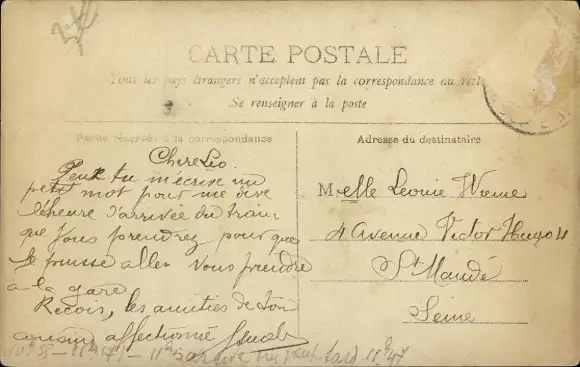 CARTE POSTALE
Tous les pays étrangers n'acceptent pas la correspondance au recto
Se renseigner à la poste
Partie réservée à la correspondance
Adresse du destinataire
Chere Léo.
Peux tu m'écrire un
petit mot pour me dire
l'heure d'arrivée du train
que vous prendrez pour que
je puisse aller vous prendre
à la gare
Recois, les amitiés de ton
cousin affectionné
Melle Leonie
4 Avenue Victor Hugo 4
St Mandé
Seine